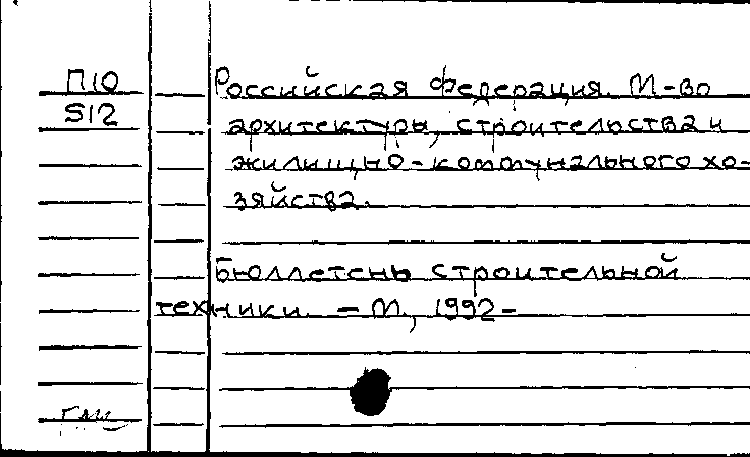 П10
S12
Российская Федерация. М-во
архитектуры, строительства и
жилищно-коммунального хо-
зяйства.
Бюллетень строительной
техники. - М., 1992-